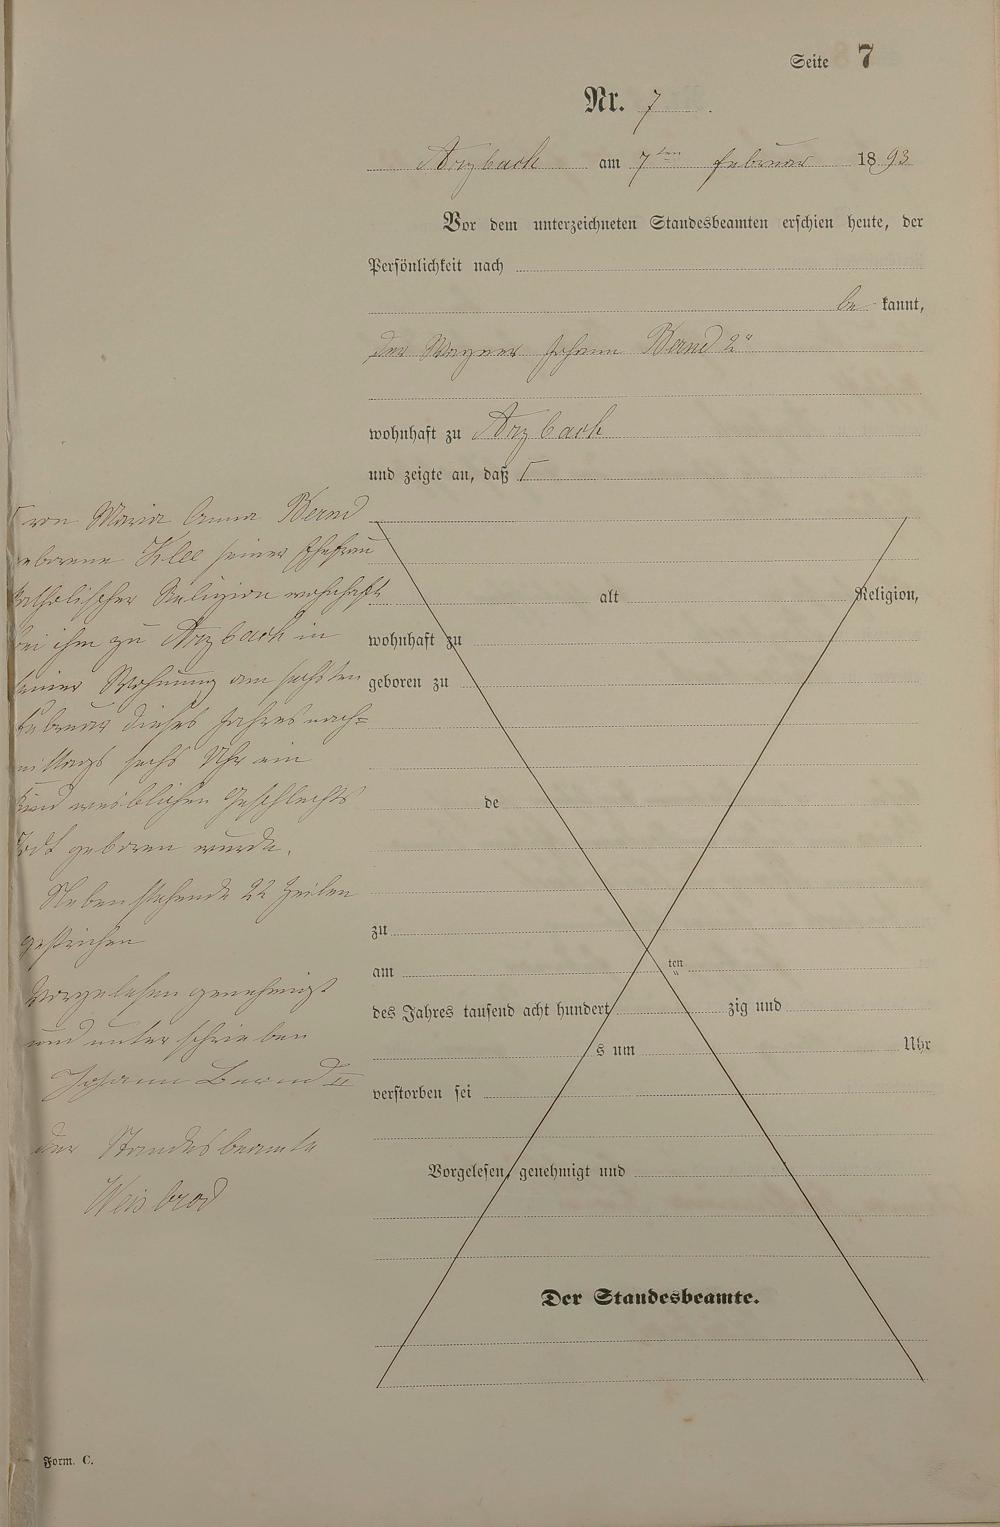 Seite 7
Nr. 7
Arzbach am 7ten Februar 1893
Vor dem unterzeichneten Standesbeamten erschien heute, der
Persönlichkeit nach
be kannt,
der Wagner Johann Bernd 2r
wohnhaft zu Arzbach
und zeigte an, daß Γ
Γ von Maria Anna Bernd
geborene Klee seiner Ehefrau
katholischer Religion wohnhaft
bei ihm zu Arzbach in
seiner Wohnung am sechsten
Februar dieses Jahres nach=
mittags sechs Uhr ein
Kind weiblichen Geschlechts
todt geboren wurde.
Nebenstehende 22 Zeilen
gestrichen
Vorgelesen genehmigt
und unterschrieben
Johann Bernd II
der Standesbeamte
Weisbrod
alt Religion,
wohnhaft zu
geboren zu
de
zu
am ten
des Jahres tausend acht hundert zig und
s um Uhr
verstorben sei
Vorgelesen, genehmigt und
Der Standesbeamte.
Form. C.